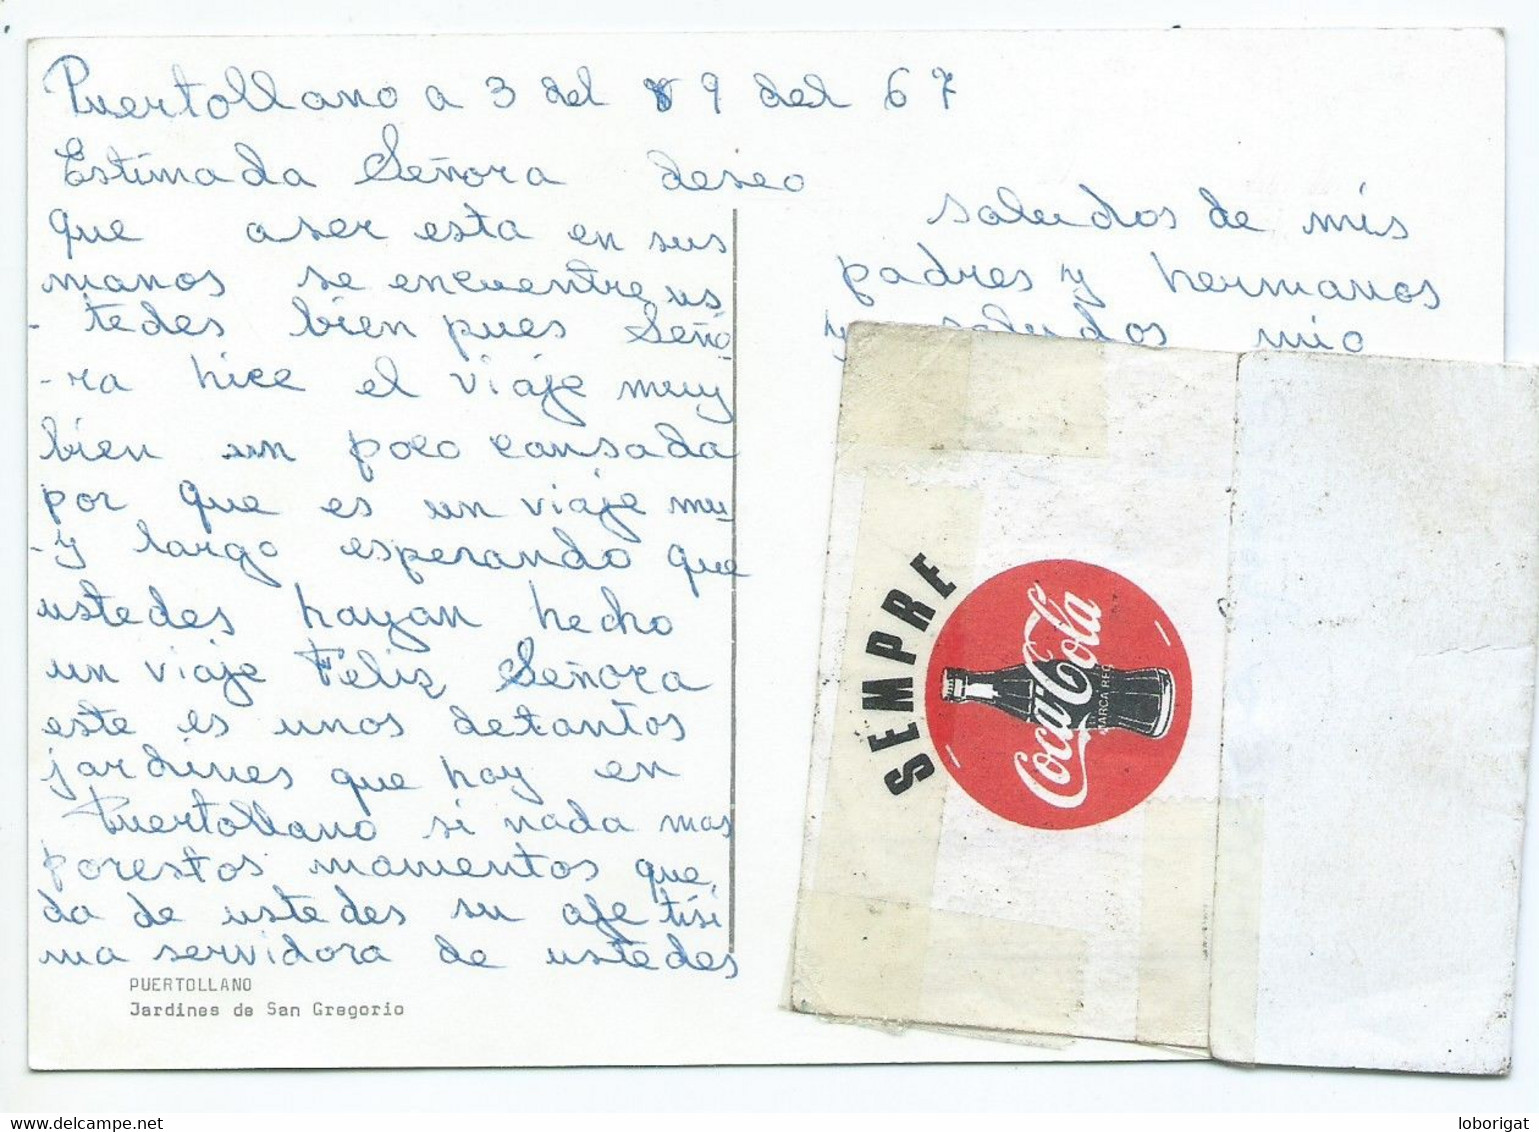 Puertollano a 3 del 9 del 67
Estimada Señora deseo
que aser esta en sus
manos se encuentre us
- tedes bien pues Seño
-ra hice el viaje muy
bien un poco cansada
por que es un viaje mu
-y largo esperando que
ustedes hayan hecho
un viaje Feliz Señora
este es unos detantos
jardines que hay en
Puertollano si nada mas
porestos mamentos que
da de ustedes su afetisi
ma servidora de ustedes
saludos de mis
padres y hermanos
y saludos mio
PUERTOLLANO
Jardines de San Gregorio
SEMPRE
Coca-Cola
MARCA REG
loborigat
delcampe.net